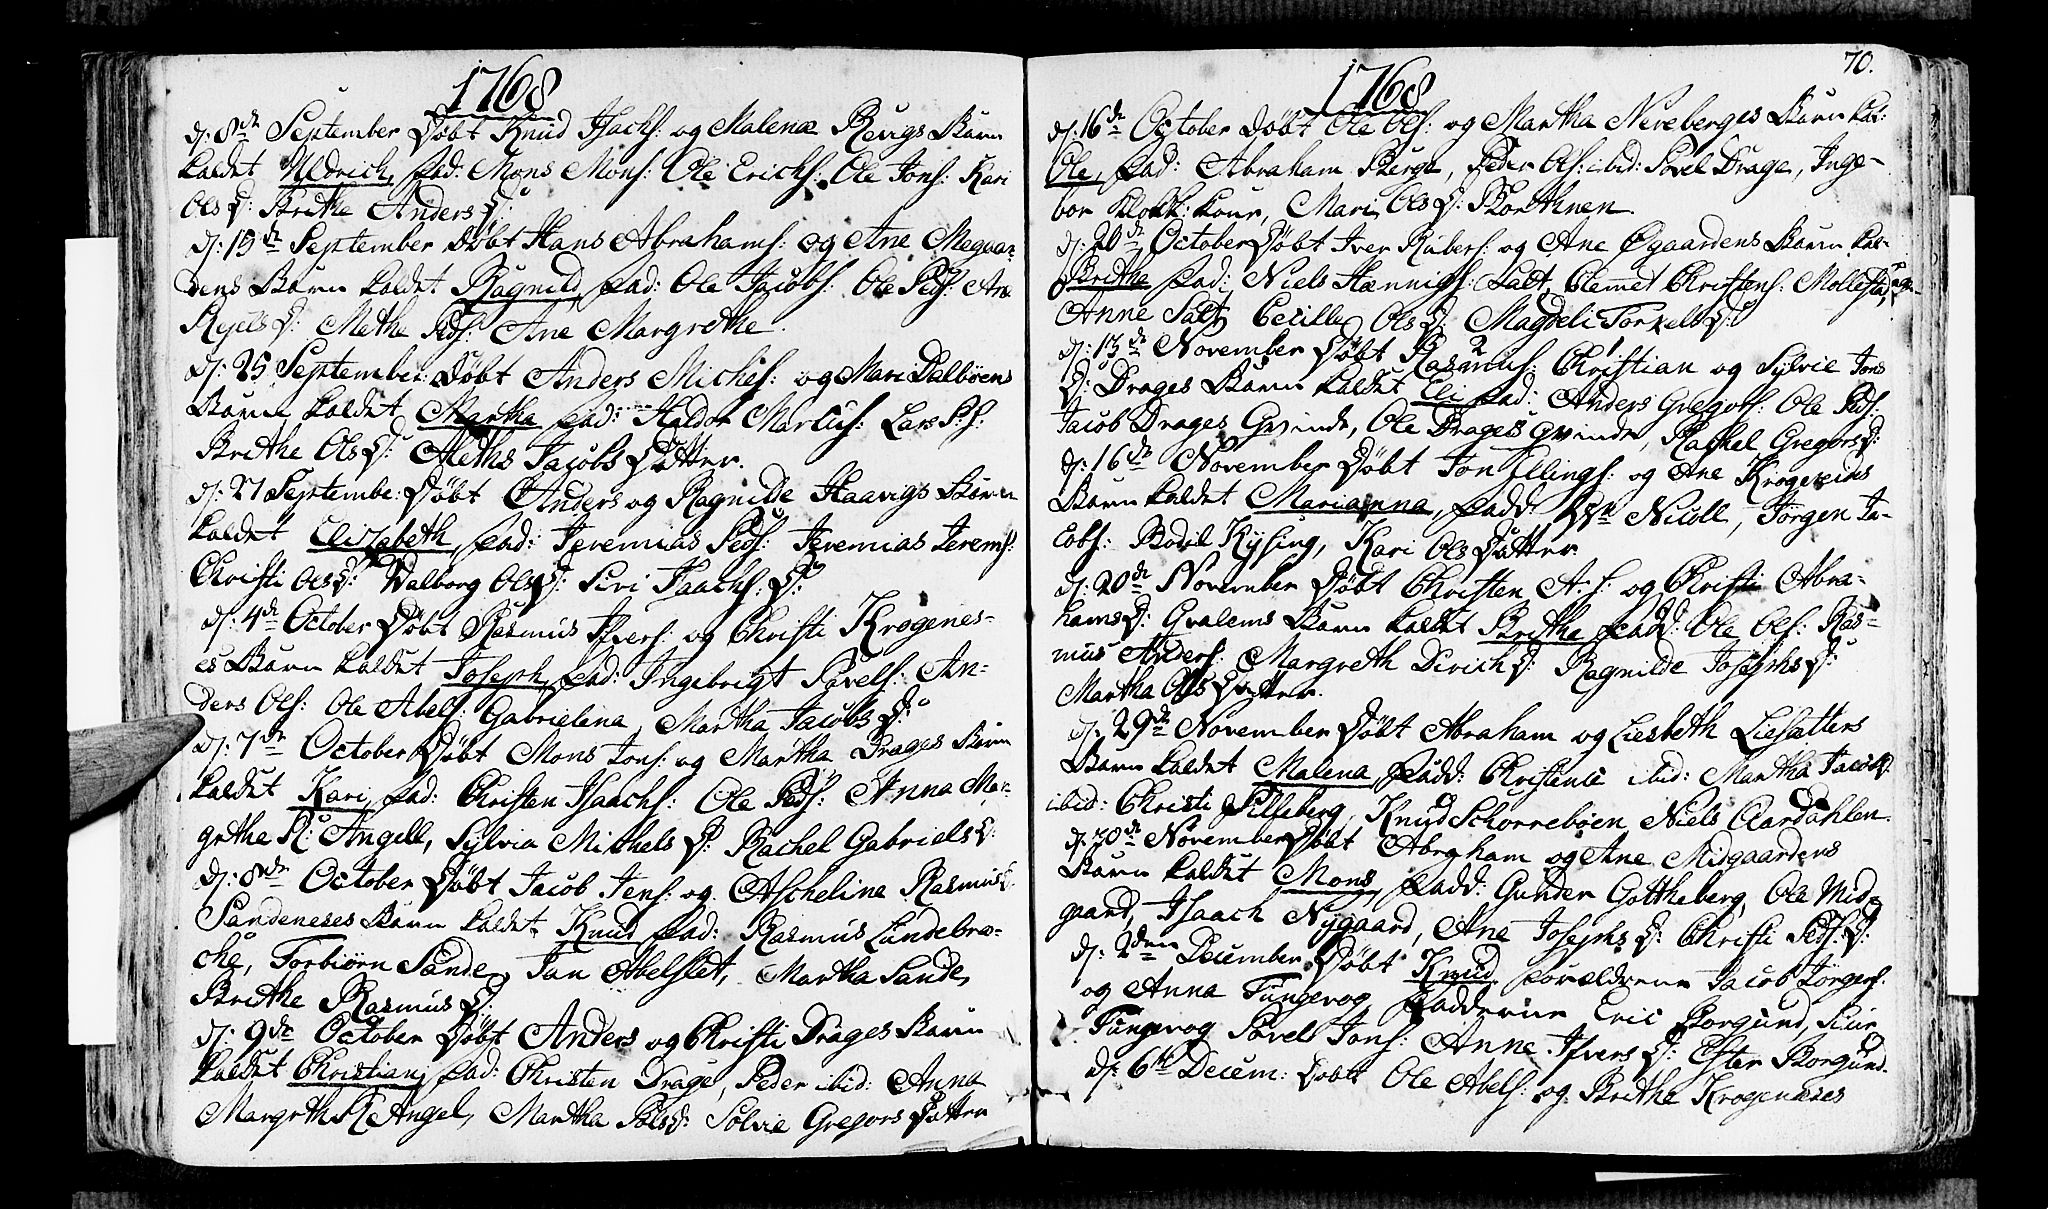 1768
d: 8de September Døbt Knud Isachs: og Malenæ Revigs Barn
kaldet Uldrich, Fad: Mons Mons: Ole Erichs: Ole Jons: Kari
Ols D: Brithe Anders D:
d: 15de September døbt Hans Abrahams: og Ane Megaar-
dens Barn kaldet Ragnild, Fad: Ole Jacobs: Ole Peds: Ane
Kjels D: Methe Peds: Ane Margrethe.
d: 25 September: Døbt Anders Michels: og Mari Dalbøens
Barn kaldet Martha Fad: Haldor Marcus: Lars P:s:
Brithe Ols D: Alethe Jacobs Datter.
d: 27 Septembe: Døbt Anders og Ragnilde Haavigs Barn
kaldet Elizabeth, Fad: Jeremias Peds: Jeremias Jerems:
Christi Ols D: Walborg Ols D: Siri Isachs: D:
d: 4de October Døbt Rasmus Ifvers: og Christi Krogenes-
es Barn kaldet Joseph, Fad: Ingebrigt Povels: An-
ders Ols: Ole Abels: Gabrielina, Martha Jacobs D:
d: 7de October Døbt Mons Jons: og Martha Drages Barn
kaldet Kari, Fad: Christen Isachs: Ole Peds: Anna Mar-
grethe R: Angell, Sylvia Michels D: Rachel Gabriels D:
d: 8de October Døbt Jacob Jens: og Aschelina Rasmus D:
Sandeneses Barn kaldet Knud Fad: Rasmus Lundebræ-
che, Torbiørn Sande, Jan Abelslet, Martha Sande,
Brithe Rasmus D:
d: 9de October Døbt Anders og Christi Drages Barn
kaldet Christian, Fad: Christen Drage, Peder ibid: Anna
Margreth R Angel, Martha Pols D: Solvie Gregors Datter
70.
1768
d: 16de October døbt Ole Ols: og Martha Nereberges Barn kal:
Ole, Fad: Abraham Berge, Peder Ols: ibid: Povel Drage, Inge-
bor Klokk: Kone, Mari Ols D: Borthnen.
d: 20de October Døbt Iver Rubers: og Ane Øgaardens Barn kal-
Brithe Fad: Niels Hennigs: Salt, Clemet Christens: Mollestad,
Anne Salt, Cecille Ols D: Magdeli Torkels D:
d: 13de November Døbt Rasmus: Christian og Sylvie Jons
D: Drages Barn kaldet Eli Fad: Anders Gregors: Ole Peds:
Jacob Drages Qvinde, Ole Drages Qvinde, Rachel Gregors D:
d: 16de November Døbt Jon Ellings: og Ane Krogenes
Barn kaldet Marianna, Fadd: Nicoll, Jørgen Ja-
cobs: Bodil Kysing, Kari Ols Datter
d: 20de November Døbt Christen A: s: og Christi Abra-
hams D: Gvalems Barn kaldet Brithe Fadd: Ole Ols: Ras-
mus Anders: Margreth Dirich D: Ragnilde Josephs D:
Martha Ols Datter.
d: 29de November Døbt Abraham og Liesbeth Liesætters
Barn kaldet Malena, Fadd: Christence ibid: Martha Jacobs
ibid: Christi Silleberg, Knud Schorrebøen, Niels Aardahlen.
d: 30de November Døbt Abraham og Ane Midgaardens
Barn kaldet Mons, Fadd: Gunder Gottheberg, Ole Mid-
gaard, Isaach Nygaard, Ane Josephs D: Christi Peds: D:
d: 2den December Døbt Knud, Forældrene Jacob Jørgens:
og Anna Tungevog, Fadderne Eric Borgund, Siur
Tungevog Povel Jons: Anne Ifvers D: Ester Borgund.
d: 6te Decem: Døbt Ole Abels: og Brithe Krogeneses